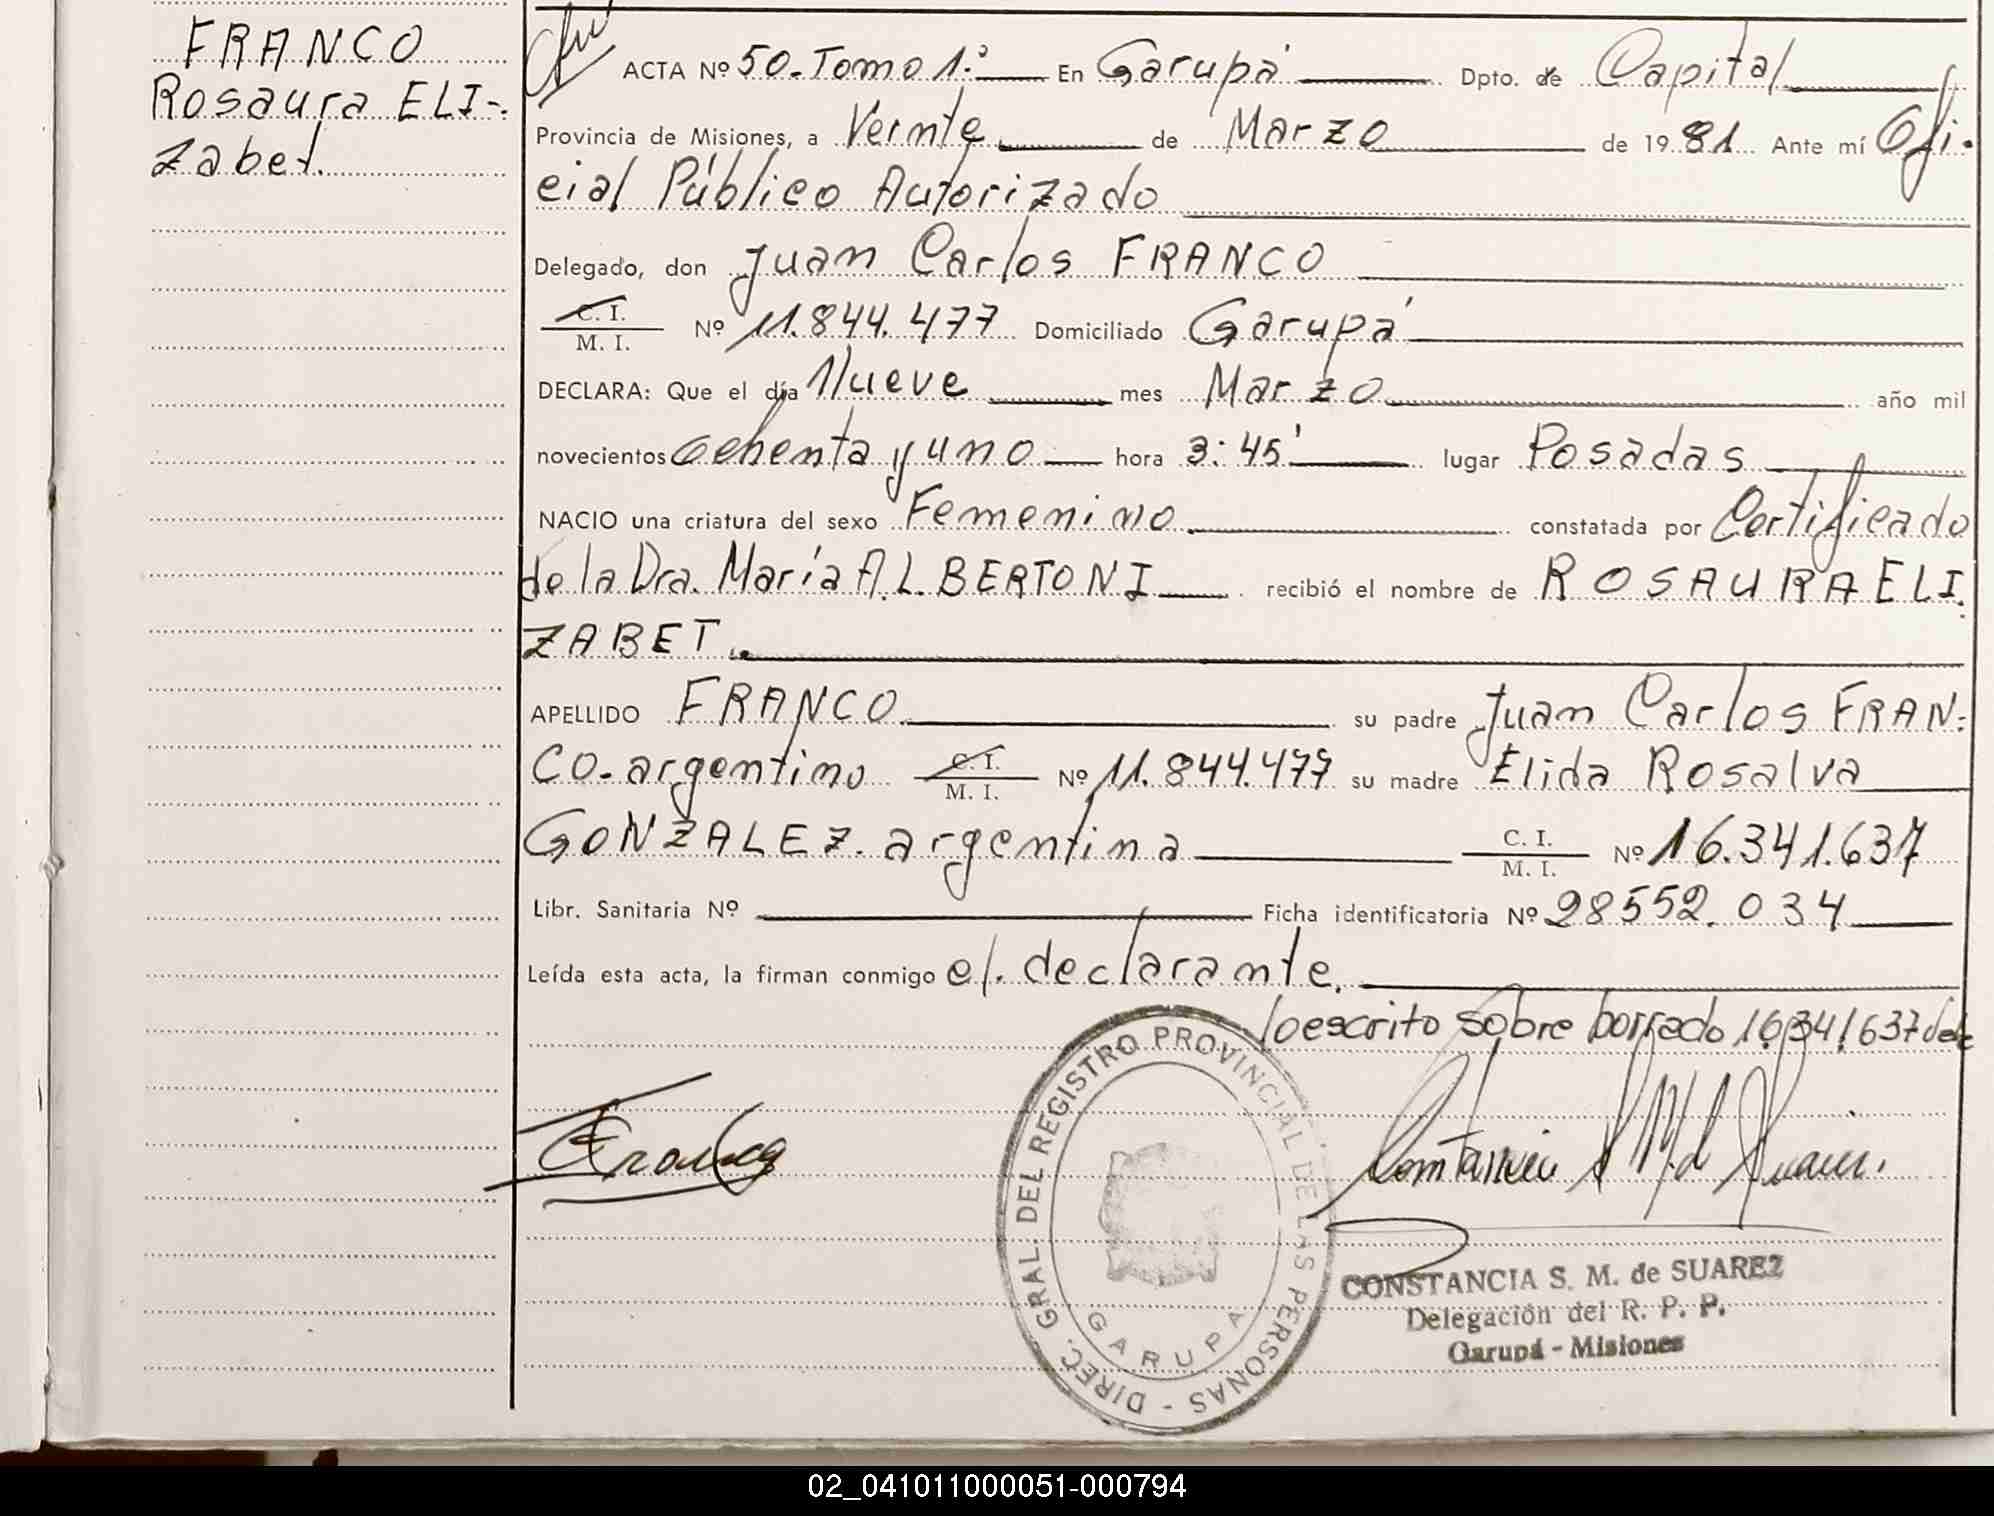 FRANCO
Rosaura ELI-
Zabet.
ACTA Nº 50-Tomo 1º En Garupá Dpto. de Capital
Provincia de Misiones, a Veinte de Marzo de 1981 Ante mí Ofi-
cial Público Autorizado
Delegado, don Juan Carlos FRANCO
C. I.
M. I. Nº 11.844.477 Domiciliado Garupá
DECLARA: Que el día Nueve mes Marzo año mil
novecientos ochenta y uno hora 3:45' lugar Posadas
NACIO una criatura del sexo Femenino constatada por Certificado
de la Dra. María A.L. BERTONI recibió el nombre de ROSAURA ELI
ZABET.
APELLIDO FRANCO su padre Juan Carlos FRAN-
CO-argentino C. I. M. I. Nº 11.844.477 su madre Elida Rosalva
GONZALEZ. argentina C. I. M. I. Nº 16.341.637
Libr. Sanitaria Nº Ficha identificatoria Nº 28552.034
Leída esta acta, la firman conmigo el declarante.
lo escrito sobre borrado 16.341.637 vale
Franco
DIREC. GRAL. DEL REGISTRO PROVINCIAL DE LAS PERSONAS -
GARUPA
CONSTANCIA S. M. de SUAREZ
Delegación del R. P. P.
Garupá - Misiones
02_041011000051-000794